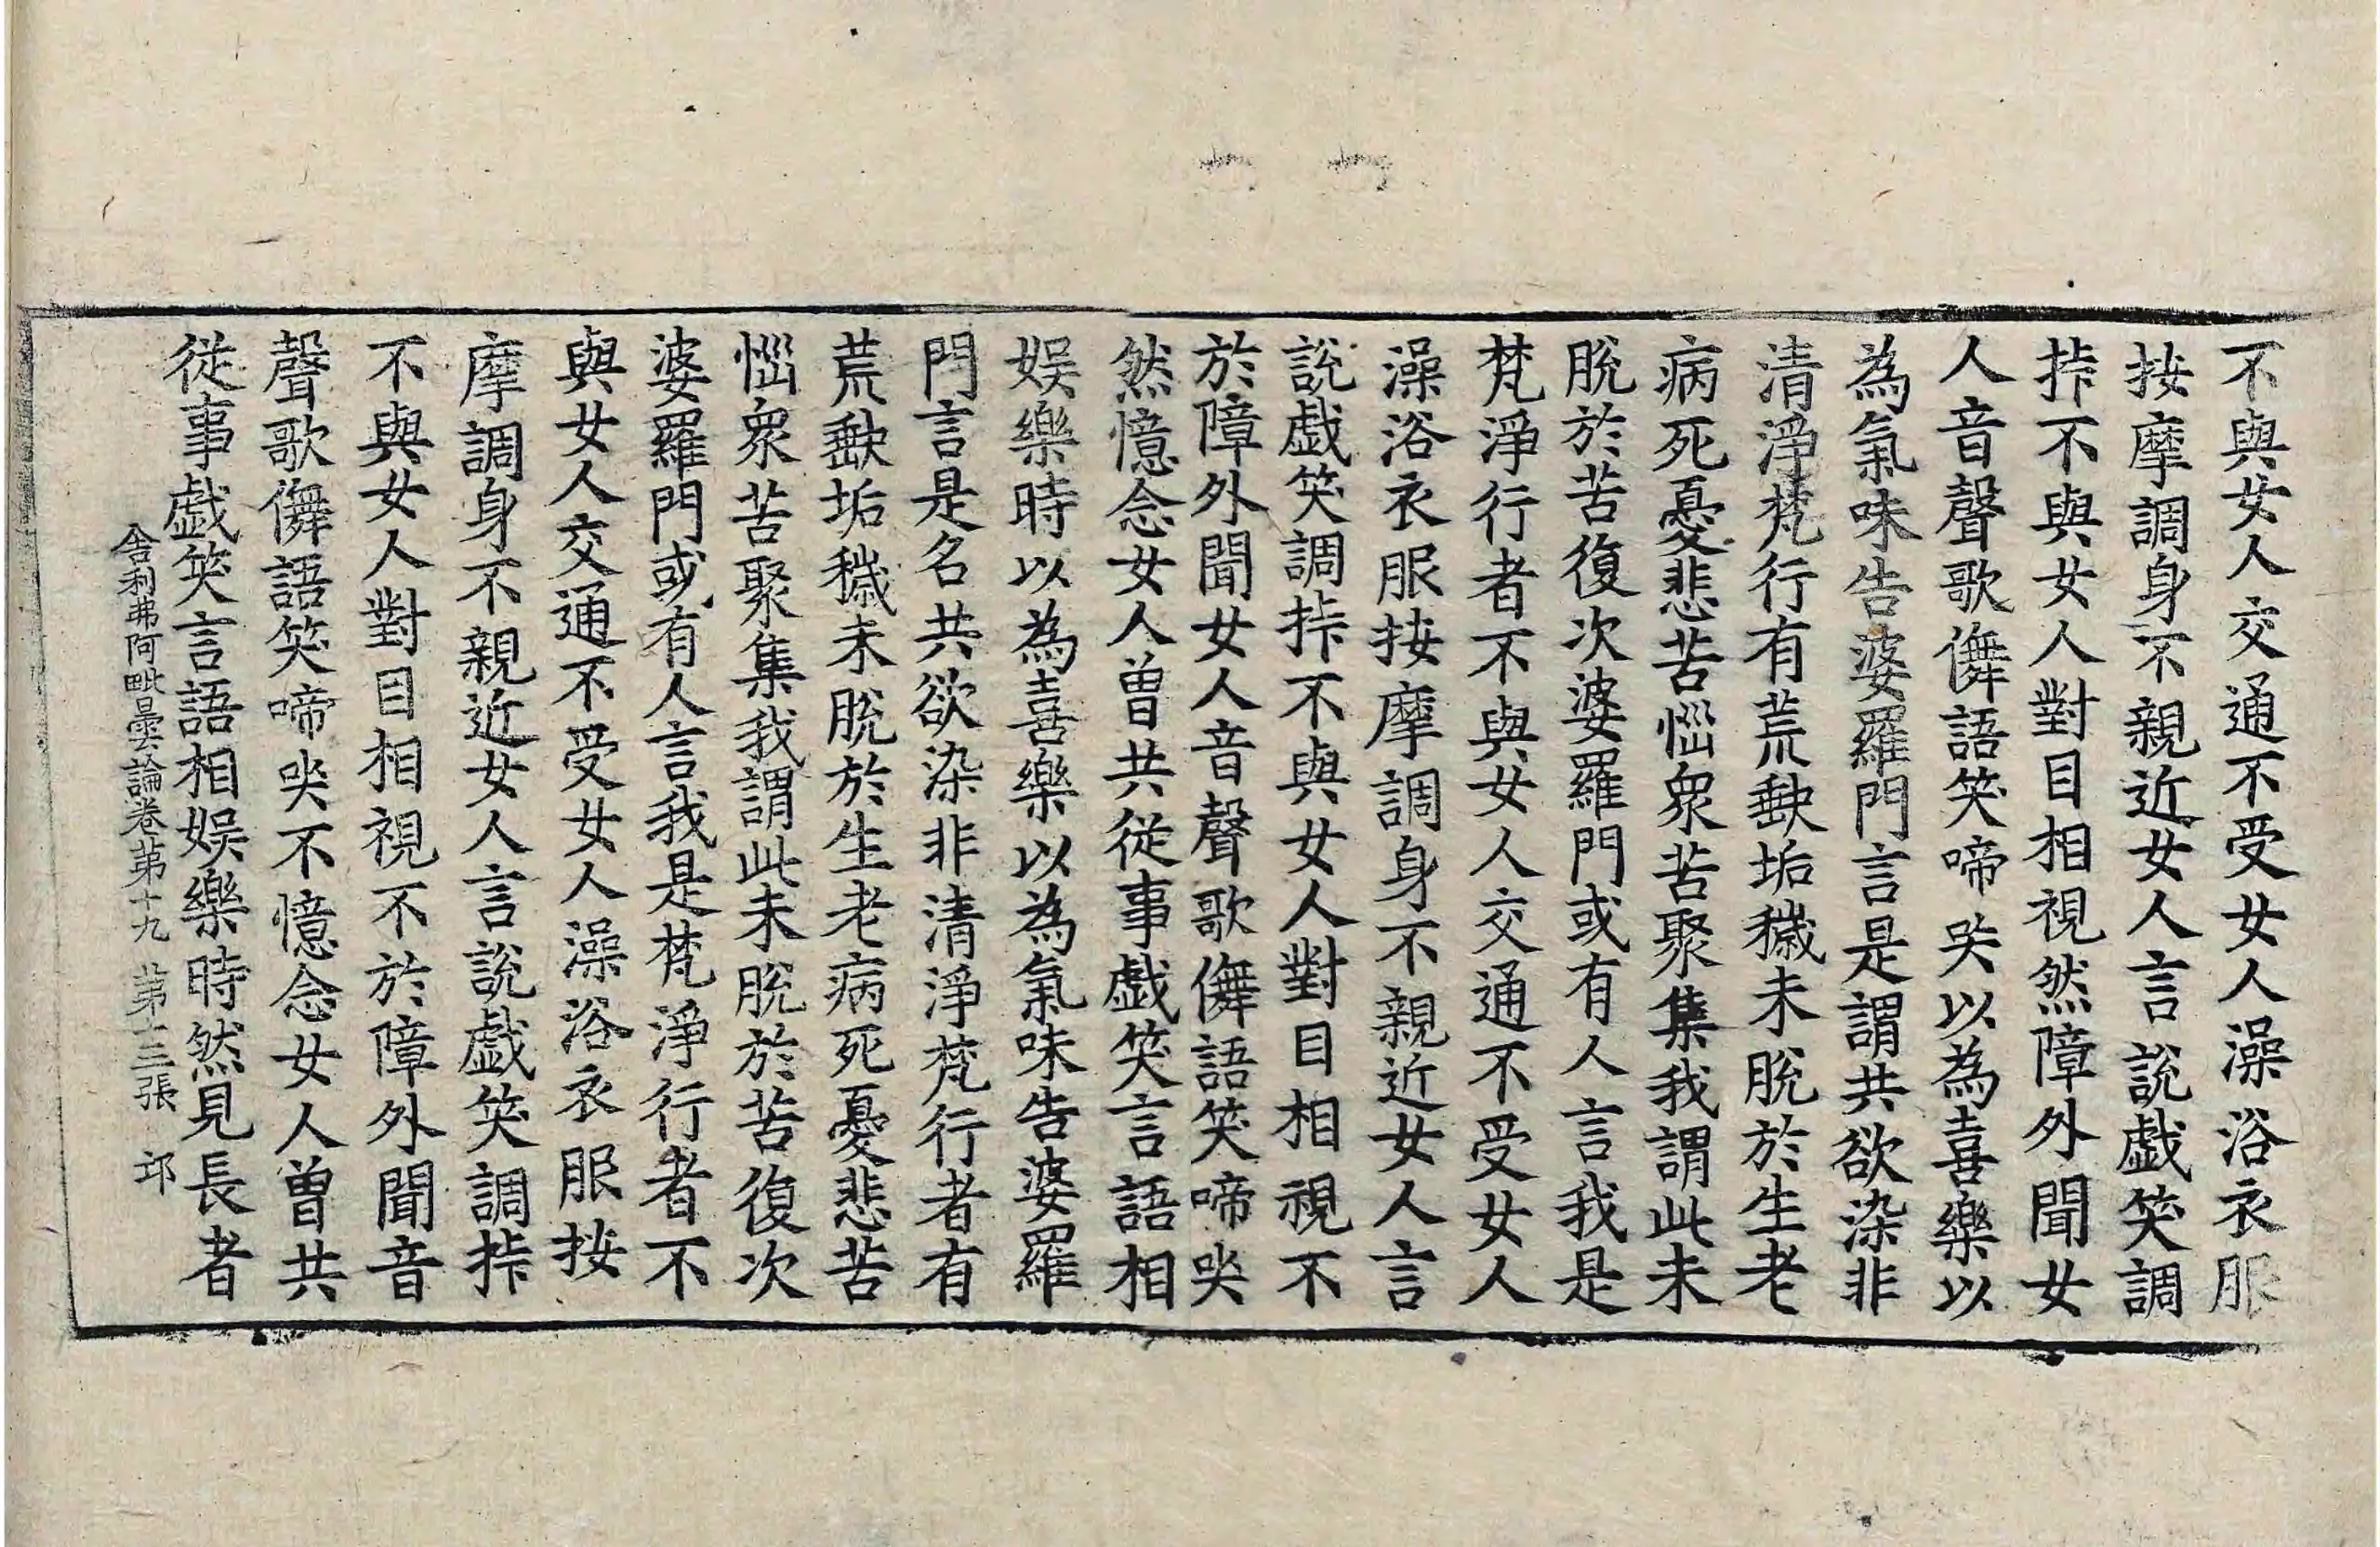 不與女人交通不受女人澡浴衣服
按摩調身不親近女人言說戲笑調
挊不與女人對目相視然障外聞女
人音聲歌儛語笑啼哭以為喜樂以
為氣味告婆羅門言是謂共欲染非
清淨梵行有荒穢垢穢未脫於生老
病死憂悲苦惱衆苦聚集我謂此未
脫於苦復次婆羅門或有人言我是
梵淨行者不與女人交通不受女人
澡浴衣服按摩調身不親近女人言
說戲笑調挊不與女人對目相視不
於障外聞女人音聲歌儛語笑啼哭
然憶念女人曾共從事戲笑言語相
娛樂時以為喜樂以為氣味告婆羅
門言是名共欲染非清淨梵行者有
荒穢垢穢未脫於生老病死憂悲苦
惱衆苦聚集我謂此未脫於苦復次
婆羅門或有人言我是梵淨行者不
與女人交通不受女人澡浴衣服按
摩調身不親近女人言說戲笑調挊
不與女人對目相視不於障外聞音
聲歌儛語笑啼哭不憶念女人曾共
從事戲笑言語相娛樂時然見長者
舍利弗阿毗曇論卷第十九 第十三張 邱